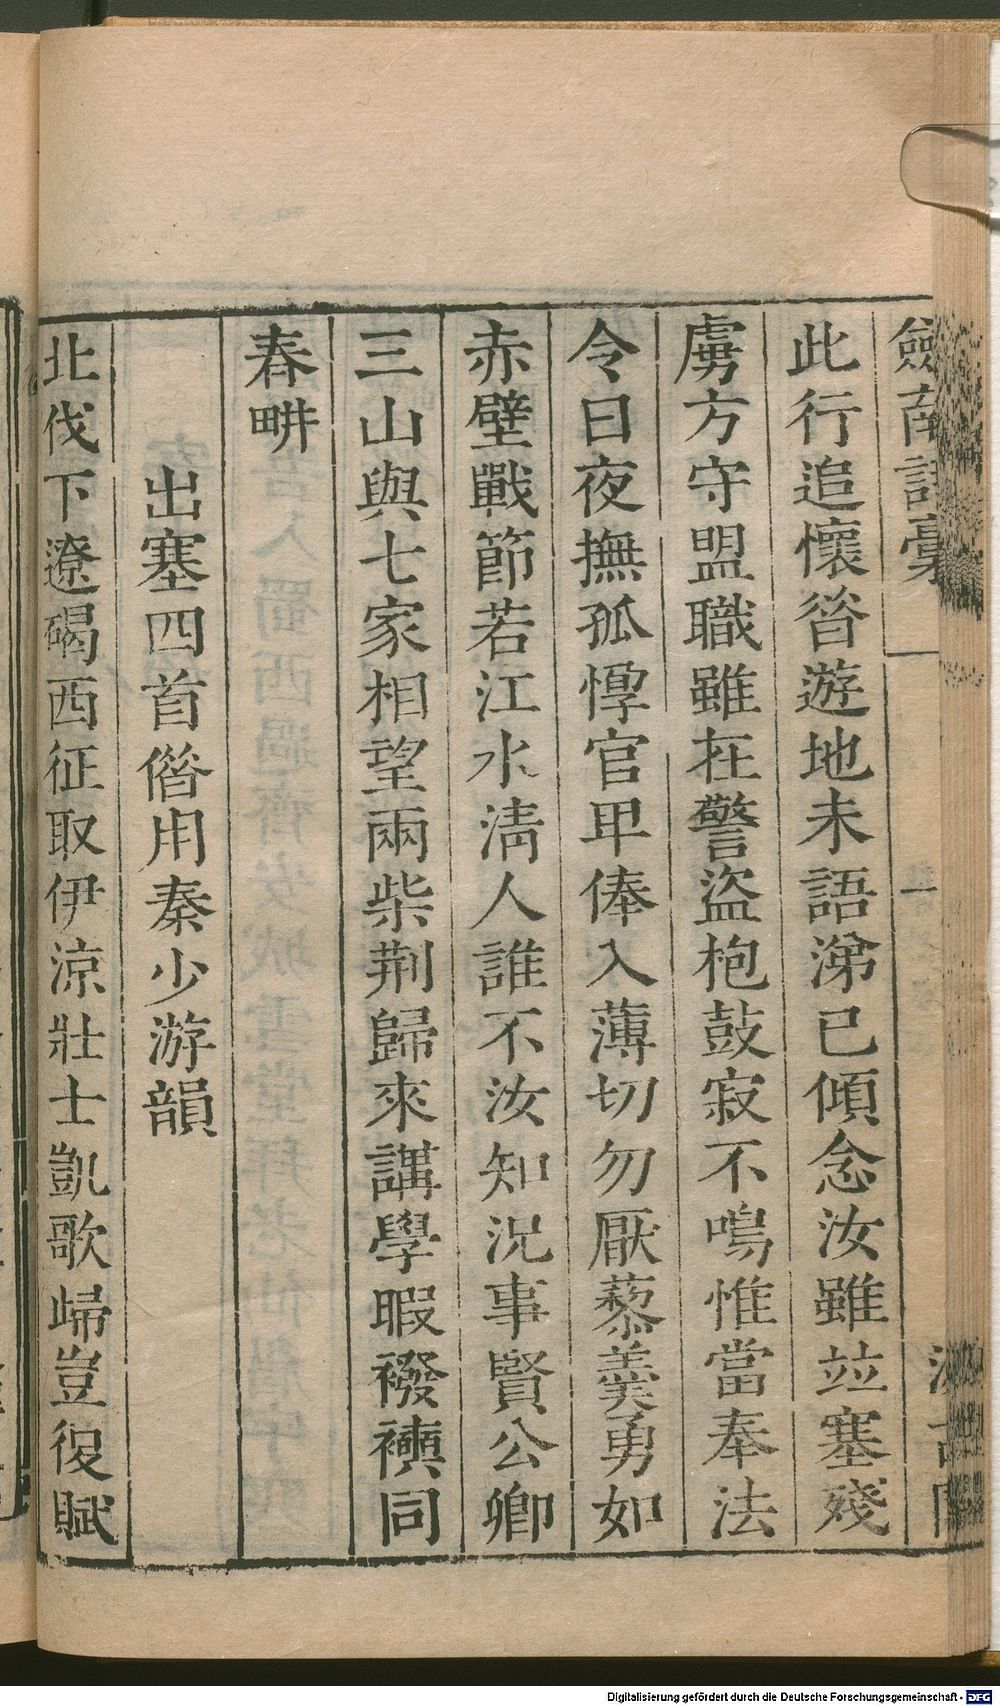 劍南詩稾
此行追懷昝遊地未語涕已傾念汝雖竝塞殘
虜方守盟職雖在警盜枹鼓寂不鳴惟當奉法
令日夜撫孤惸官卑俸入薄切勿厭藜羹勇如
赤壁戰節若江水淸人誰不汝知況事賢公卿
三山與七家相望兩柴荆歸來講學暇襏襫同
春畊
出塞四首偺用秦少游韻
北伐下遼碣西征取伊涼壯士凱歌歸豈復賦
Digitalisierung gefördert durch die Deutsche Forschungsgemeinschaft - DFG